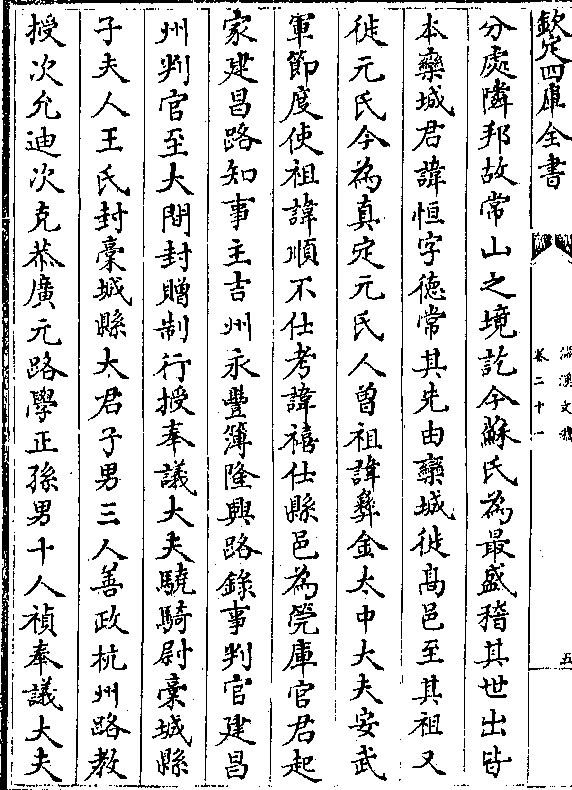 欽定四庫全書
滋溪文稿
卷二十一
五
分處隣邦故常山之境訖今蘇氏為最盛稽其世出皆
本欒城君諱恒字徳常其先由欒城徙髙邑至其祖又
徙元氏今為真定元氏人曽祖諱彝金太中大夫安武
軍節度使祖諱順不仕考諱禧仕縣邑為筦庫官君起
家建昌路知事主吉州永豐簿隆興路錄事判官建昌
州判官至大間封贈制行授奉議大夫驍騎尉藁城縣
子夫人王氏封藁城縣太君子男三人善政杭州路教
授次允迪次克恭廣元路學正孫男十人禎奉議大夫